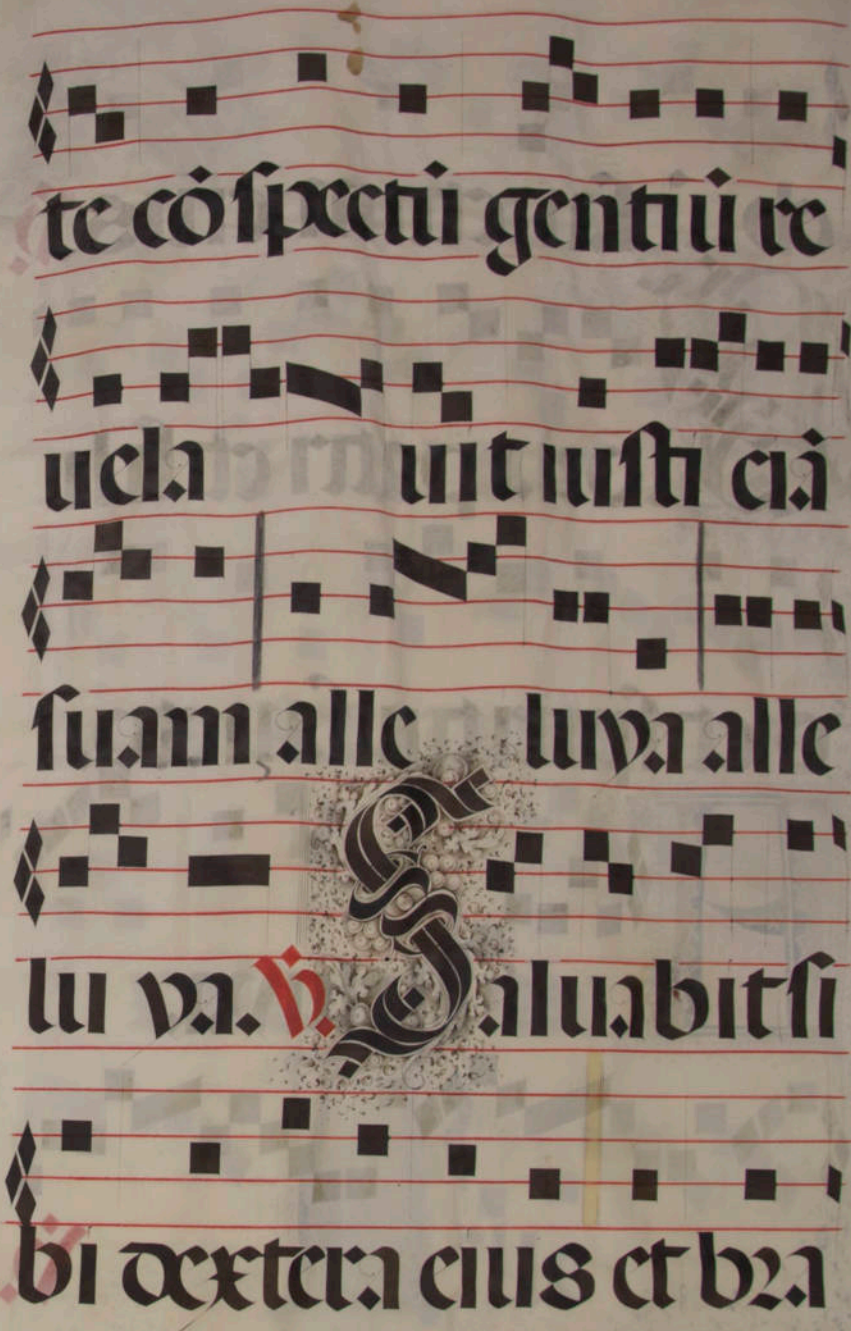 te cō spectū gentiū re
uela uit iusti ciā
suam alle luya alle
lu ya. V. Saluabit si
bi dextera eius et bra